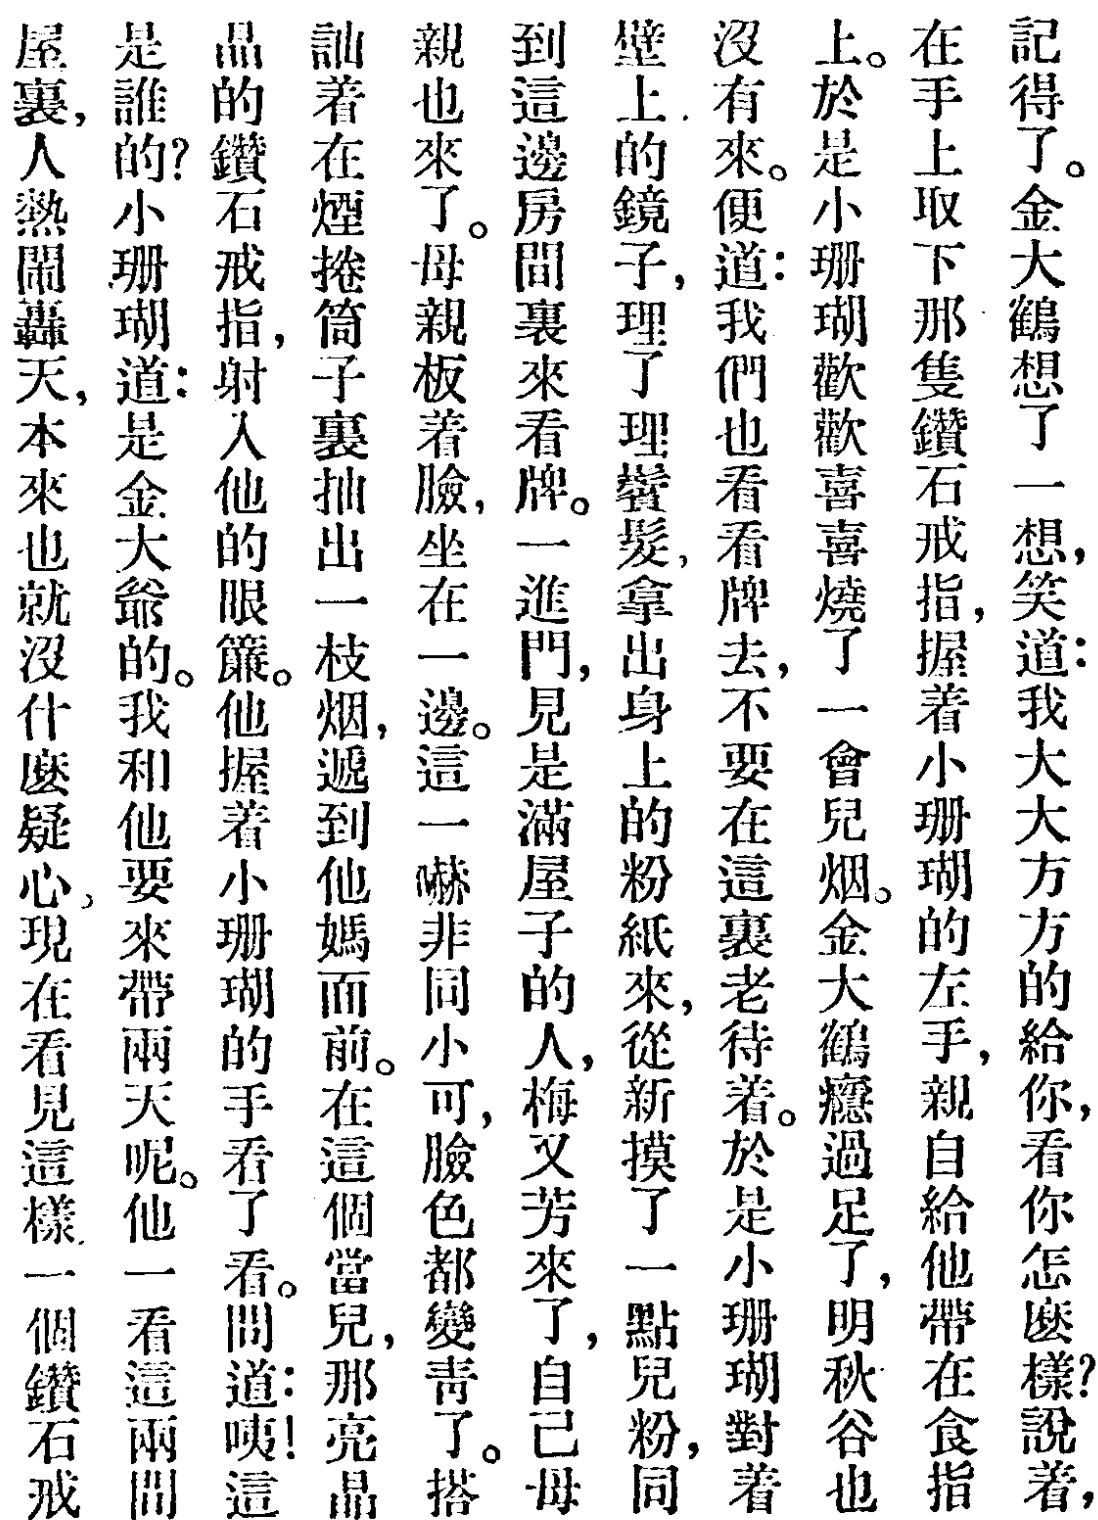 記得了。金大鶴想了一想，笑道：我大大方方的給你，看你怎麽樣？說着，
在手上取下那隻鑽石戒指，握着小珊瑚的左手，親自給他帶在食指
上。於是小珊瑚歡歡喜喜燒了一會兒烟。金大鶴癮過足了，明秋谷也
沒有來。便道：我們也看看牌去，不要在這裏老待着。於是小珊瑚對着
壁上的鏡子，理了理鬢髮，拿出身上的粉紙來，從新摸了一點兒粉，同
到這邊房間裏來看牌。一進門，見是滿屋子的人，梅又芳來了，自己母
親也來了。母親板着臉，坐在一邊。這一嚇非同小可，臉色都變靑了。搭
訕着在煙捲筒子裏抽出一枝烟，遞到他媽面前。在這個當兒，那亮晶
晶的鑽石戒指，射入他的眼簾。他握着小珊瑚的手看了看。問道：咦！這
是誰的？小珊瑚道：是金大爺的。我和他要來帶兩天呢。他一看這兩間
屋裏，人熱鬧轟天，本來也就沒什麽疑心，現在看見這樣一個鑽石戒